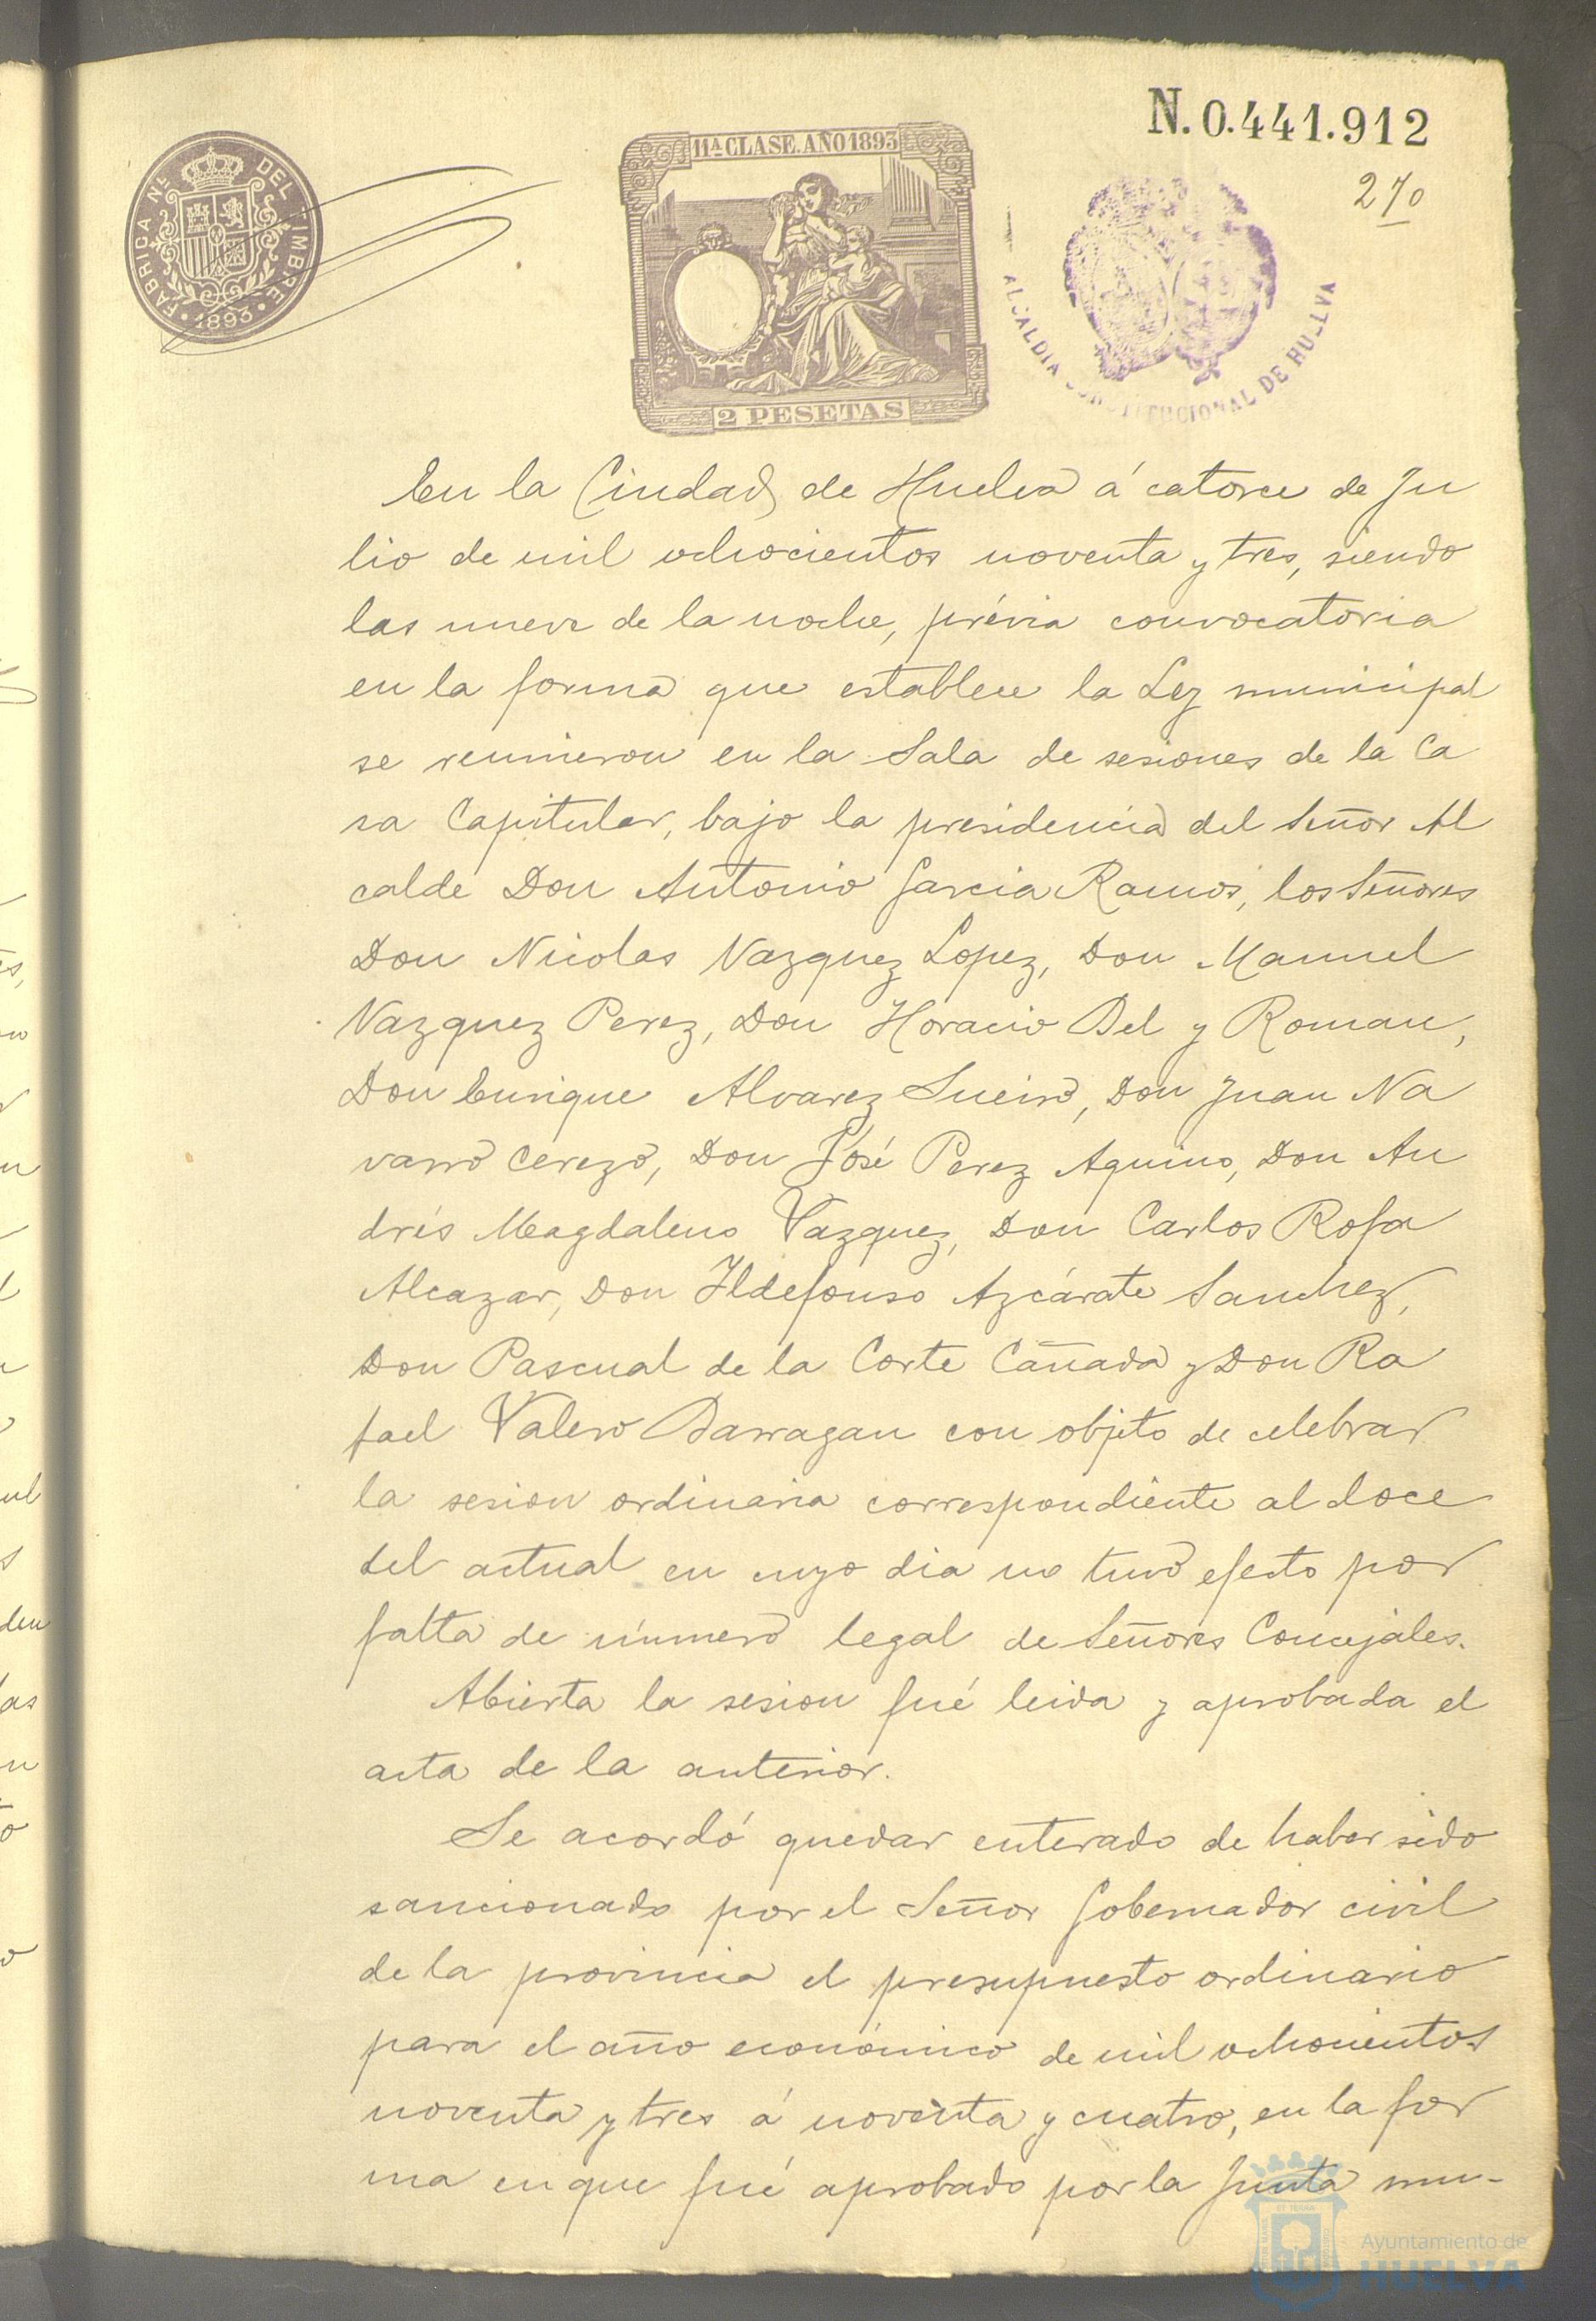 N. 0.441.912
270
FABRICA Nl. DEL TIMBRE
1893
11ª CLASE. AÑO 1893
2 PESETAS
ALCALDIA CONSTITUCIONAL DE HUELVA
En la Ciudad de Huelva á catorce de Ju
lio de mil ochocientos noventa y tres, siendo
las nueve de la noche, prévia convocatoria
en la forma que establece la Ley municipal
se reunieron en la Sala de sesiones de la Ca
sa Capitular, bajo la presidencia del Señor Al
calde Don Antonio Garcia Ramos, los Señores
Don Nicolas Vazquez Lopez, Don Manuel
Vazquez Perez, Don Horacio Bel y Roman,
Don Enrique Alvarez Sueiro, Don Juan Na
varro Cerezo, Don José Perez Aquino, Don An
drés Magdaleno Vazquez, Don Carlos Rofa
Alcazar, Don Ildefonso Azcárate Sanchez,
Don Pascual de la Corte Cañada y Don Ra
fael Valero Barragan con objeto de celebrar
la sesion ordinaria correspondiente al doce
del actual en cuyo dia no tuvo efecto por
falta de número legal de Señores Concejales.
Abierta la sesion fué leida y aprobada el
acta de la anterior.
Se acordó quedar enterado de haber sido
sancionado por el Señor Gobernador civil
de la provincia el presupuesto ordinario
para el año económico de mil ochocientos
noventa y tres á noventa y cuatro, en la for
ma en que fué aprobado por la Junta mu-
Ayuntamiento de
HUELVA